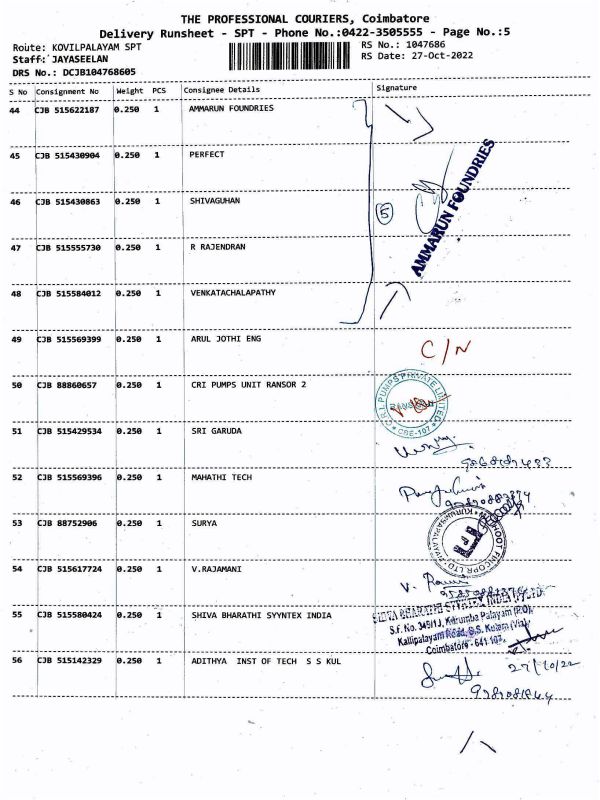 THE PROFESSIONAL COURIERS, Coimbatore
Delivery Runsheet - SPT - Phone No.:0422-3505555 - Page No.:5
Route: KOVILPALAYAM SPT
RS No.: 1047686
Staff: JAYASEELAN
RS Date: 27-Oct-2022
DRS No.: DCJB104768605
S No Consignment No Weight PCS Consignee Details Signature
44 CJB 515622187 0.250 1 AMMARUN FOUNDRIES
45 CJB 515430904 0.250 1 PERFECT
46 CJB 515430863 0.250 1 SHIVAGUHAN
5
AMMARUN FOUNDRIES
47 CJB 515555730 0.250 1 R RAJENDRAN
48 CJB 515584012 0.250 1 VENKATACHALAPATHY
49 CJB 515569399 0.250 1 ARUL JOTHI ENG
C/N
50 CJB 88860657 0.250 1 CRI PUMPS UNIT RANSOR 2
C.R.I. PUMPS PRIVATE LIMITED
CBE-107
51 CJB 515429534 0.250 1 SRI GARUDA
52 CJB 515569396 0.250 1 MAHATHI TECH
53 CJB 88752906 0.250 1 SURYA
54 CJB 515617724 0.250 1 V.RAJAMANI
55 CJB 515580424 0.250 1 SHIVA BHARATHI SYYNTEX INDIA
S.f. No. 349/1J, Kurumba Palayam (P.O),
Kallipalayam Road, S.S. Kulam (Via)
Coimbatore - 641 107.
56 CJB 515142329 0.250 1 ADITHYA INST OF TECH S S KUL
27/10/22